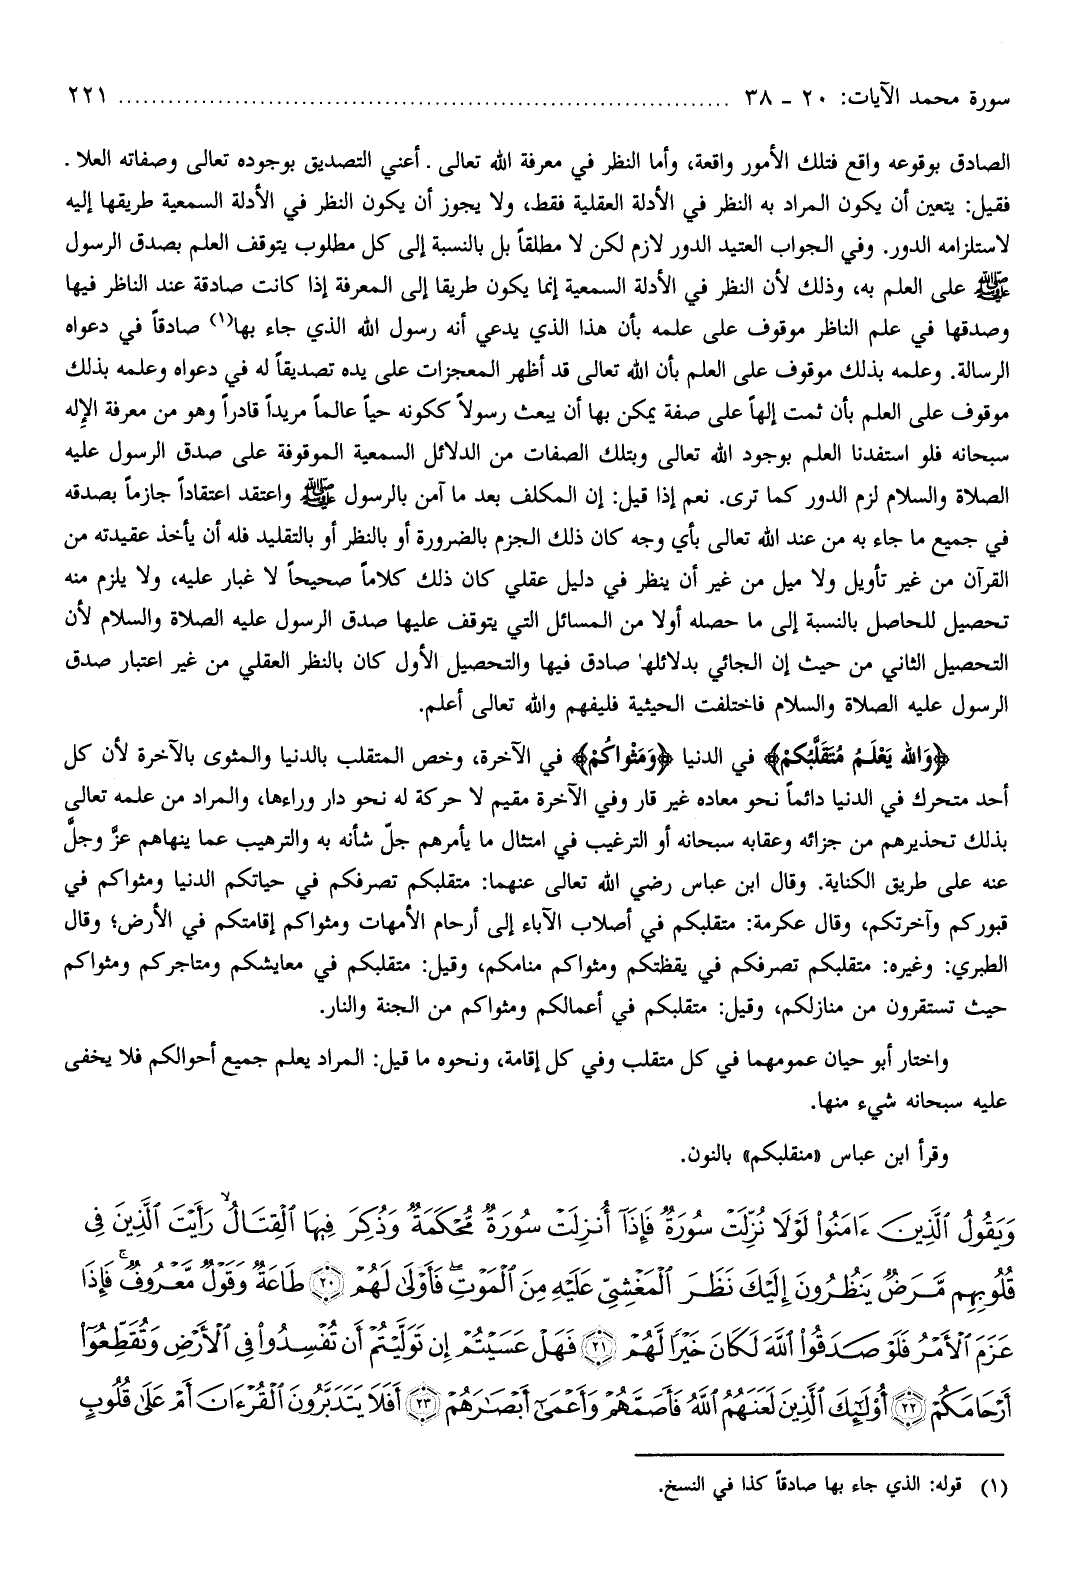 سورة محمد الآيات: ٢٠ ـ ٣٨ ........................................................................ ٢٢١
الصادق بوقوعه واقع فتلك الأمور واقعة، وأما النظر في معرفة الله تعالى . أعني التصديق بوجوده تعالى وصفاته العلا .
فقيل: يتعين أن يكون المراد به النظر في الأدلة العقلية فقط، ولا يجوز أن يكون النظر في الأدلة السمعية طريقها إليه
لاستلزامه الدور. وفي الجواب العتيد الدور لازم لكن لا مطلقاً بل بالنسبة إلى كل مطلوب يتوقف العلم بصدق الرسول
ﷺ على العلم به، وذلك لأن النظر في الأدلة السمعية إنما يكون طريقا إلى المعرفة إذا كانت صادقة عند الناظر فيها
وصدقها في علم الناظر موقوف على علمه بأن هذا الذي يدعي أنه رسول الله الذي جاء بها(١) صادقاً في دعواه
الرسالة. وعلمه بذلك موقوف على العلم بأن الله تعالى قد أظهر المعجزات على يده تصديقاً له في دعواه وعلمه بذلك
موقوف على العلم بأن ثمت إلهاً على صفة يمكن بها أن يبعث رسولاً ككونه حياً عالماً مريداً قادراً وهو من معرفة الإله
سبحانه فلو استفدنا العلم بوجود الله تعالى وبتلك الصفات من الدلائل السمعية الموقوفة على صدق الرسول عليه
الصلاة والسلام لزم الدور كما ترى. نعم إذا قيل: إن المكلف بعد ما آمن بالرسول ﷺ واعتقد اعتقاداً جازماً بصدقه
في جميع ما جاء به من عند الله تعالى بأي وجه كان ذلك الجزم بالضرورة أو بالنظر أو بالتقليد فله أن يأخذ عقيدته من
القرآن من غير تأويل ولا ميل من غير أن ينظر في دليل عقلي كان ذلك كلاماً صحيحاً لا غبار عليه، ولا يلزم منه
تحصيل للحاصل بالنسبة إلى ما حصله أولا من المسائل التي يتوقف عليها صدق الرسول عليه الصلاة والسلام لأن
التحصيل الثاني من حيث إن الجائي بدلائلها صادق فيها والتحصيل الأول كان بالنظر العقلي من غير اعتبار صدق
الرسول عليه الصلاة والسلام فاختلفت الحيثية فليفهم والله تعالى أعلم.
﴿وَالله يَعْلَمُ مُتَقَلَّبَكُمْ﴾ في الدنيا ﴿وَمَثْوَاكُمْ﴾ في الآخرة، وخص المتقلب بالدنيا والمثوى بالآخرة لأن كل
أحد متحرك في الدنيا دائماً نحو معاده غير قار وفي الآخرة مقيم لا حركة له نحو دار وراءها، والمراد من علمه تعالى
بذلك تحذيرهم من جزائه وعقابه سبحانه أو الترغيب في امتثال ما يأمرهم جلّ شأنه به والترهيب عما ينهاهم عزَّ وجلَّ
عنه على طريق الكناية. وقال ابن عباس رضي الله تعالى عنهما: متقلبكم تصرفكم في حياتكم الدنيا ومثواكم في
قبوركم وآخرتكم، وقال عكرمة: متقلبكم في أصلاب الآباء إلى أرحام الأمهات ومثواكم إقامتكم في الأرض؛ وقال
الطبري: وغيره: متقلبكم تصرفكم في يقظتكم ومثواكم منامكم، وقيل: متقلبكم في معايشكم ومتاجركم ومثواكم
حيث تستقرون من منازلكم، وقيل: متقلبكم في أعمالكم ومثواكم من الجنة والنار.
واختار أبو حيان عمومهما في كل متقلب وفي كل إقامة، ونحوه ما قيل: المراد يعلم جميع أحوالكم فلا يخفى
عليه سبحانه شيء منها.
وقرأ ابن عباس «منقلبكم» بالنون.
وَيَقُولُ ٱلَّذِينَ ءَامَنُوا۟ لَوْلَا نُزِّلَتْ سُورَةٌ فَإِذَآ أُنزِلَتْ سُورَةٌ مُّحْكَمَةٌ وَذُكِرَ فِيهَا ٱلْقِتَالُ رَأَيْتَ ٱلَّذِينَ فِى
قُلُوبِهِم مَّرَضٌ يَنظُرُونَ إِلَيْكَ نَظَرَ ٱلْمَغْشِىِّ عَلَيْهِ مِنَ ٱلْمَوْتِ فَأَوْلَىٰ لَهُمْ ٢٠ طَاعَةٌ وَقَوْلٌ مَّعْرُوفٌ فَإِذَا
عَزَمَ ٱلْأَمْرُ فَلَوْ صَدَقُوا۟ ٱللَّهَ لَكَانَ خَيْرًا لَّهُمْ ٢١ فَهَلْ عَسَيْتُمْ إِن تَوَلَّيْتُمْ أَن تُفْسِدُوا۟ فِى ٱلْأَرْضِ وَتُقَطِّعُوٓا۟
أَرْحَامَكُمْ ٢٢ أُو۟لَٰٓئِكَ ٱلَّذِينَ لَعَنَهُمُ ٱللَّهُ فَأَصَمَّهُمْ وَأَعْمَىٰٓ أَبْصَٰرَهُمْ ٢٣ أَفَلَا يَتَدَبَّرُونَ ٱلْقُرْءَانَ أَمْ عَلَىٰ قُلُوبٍ
(١) قوله: الذي جاء بها صادقاً كذا في النسخ.